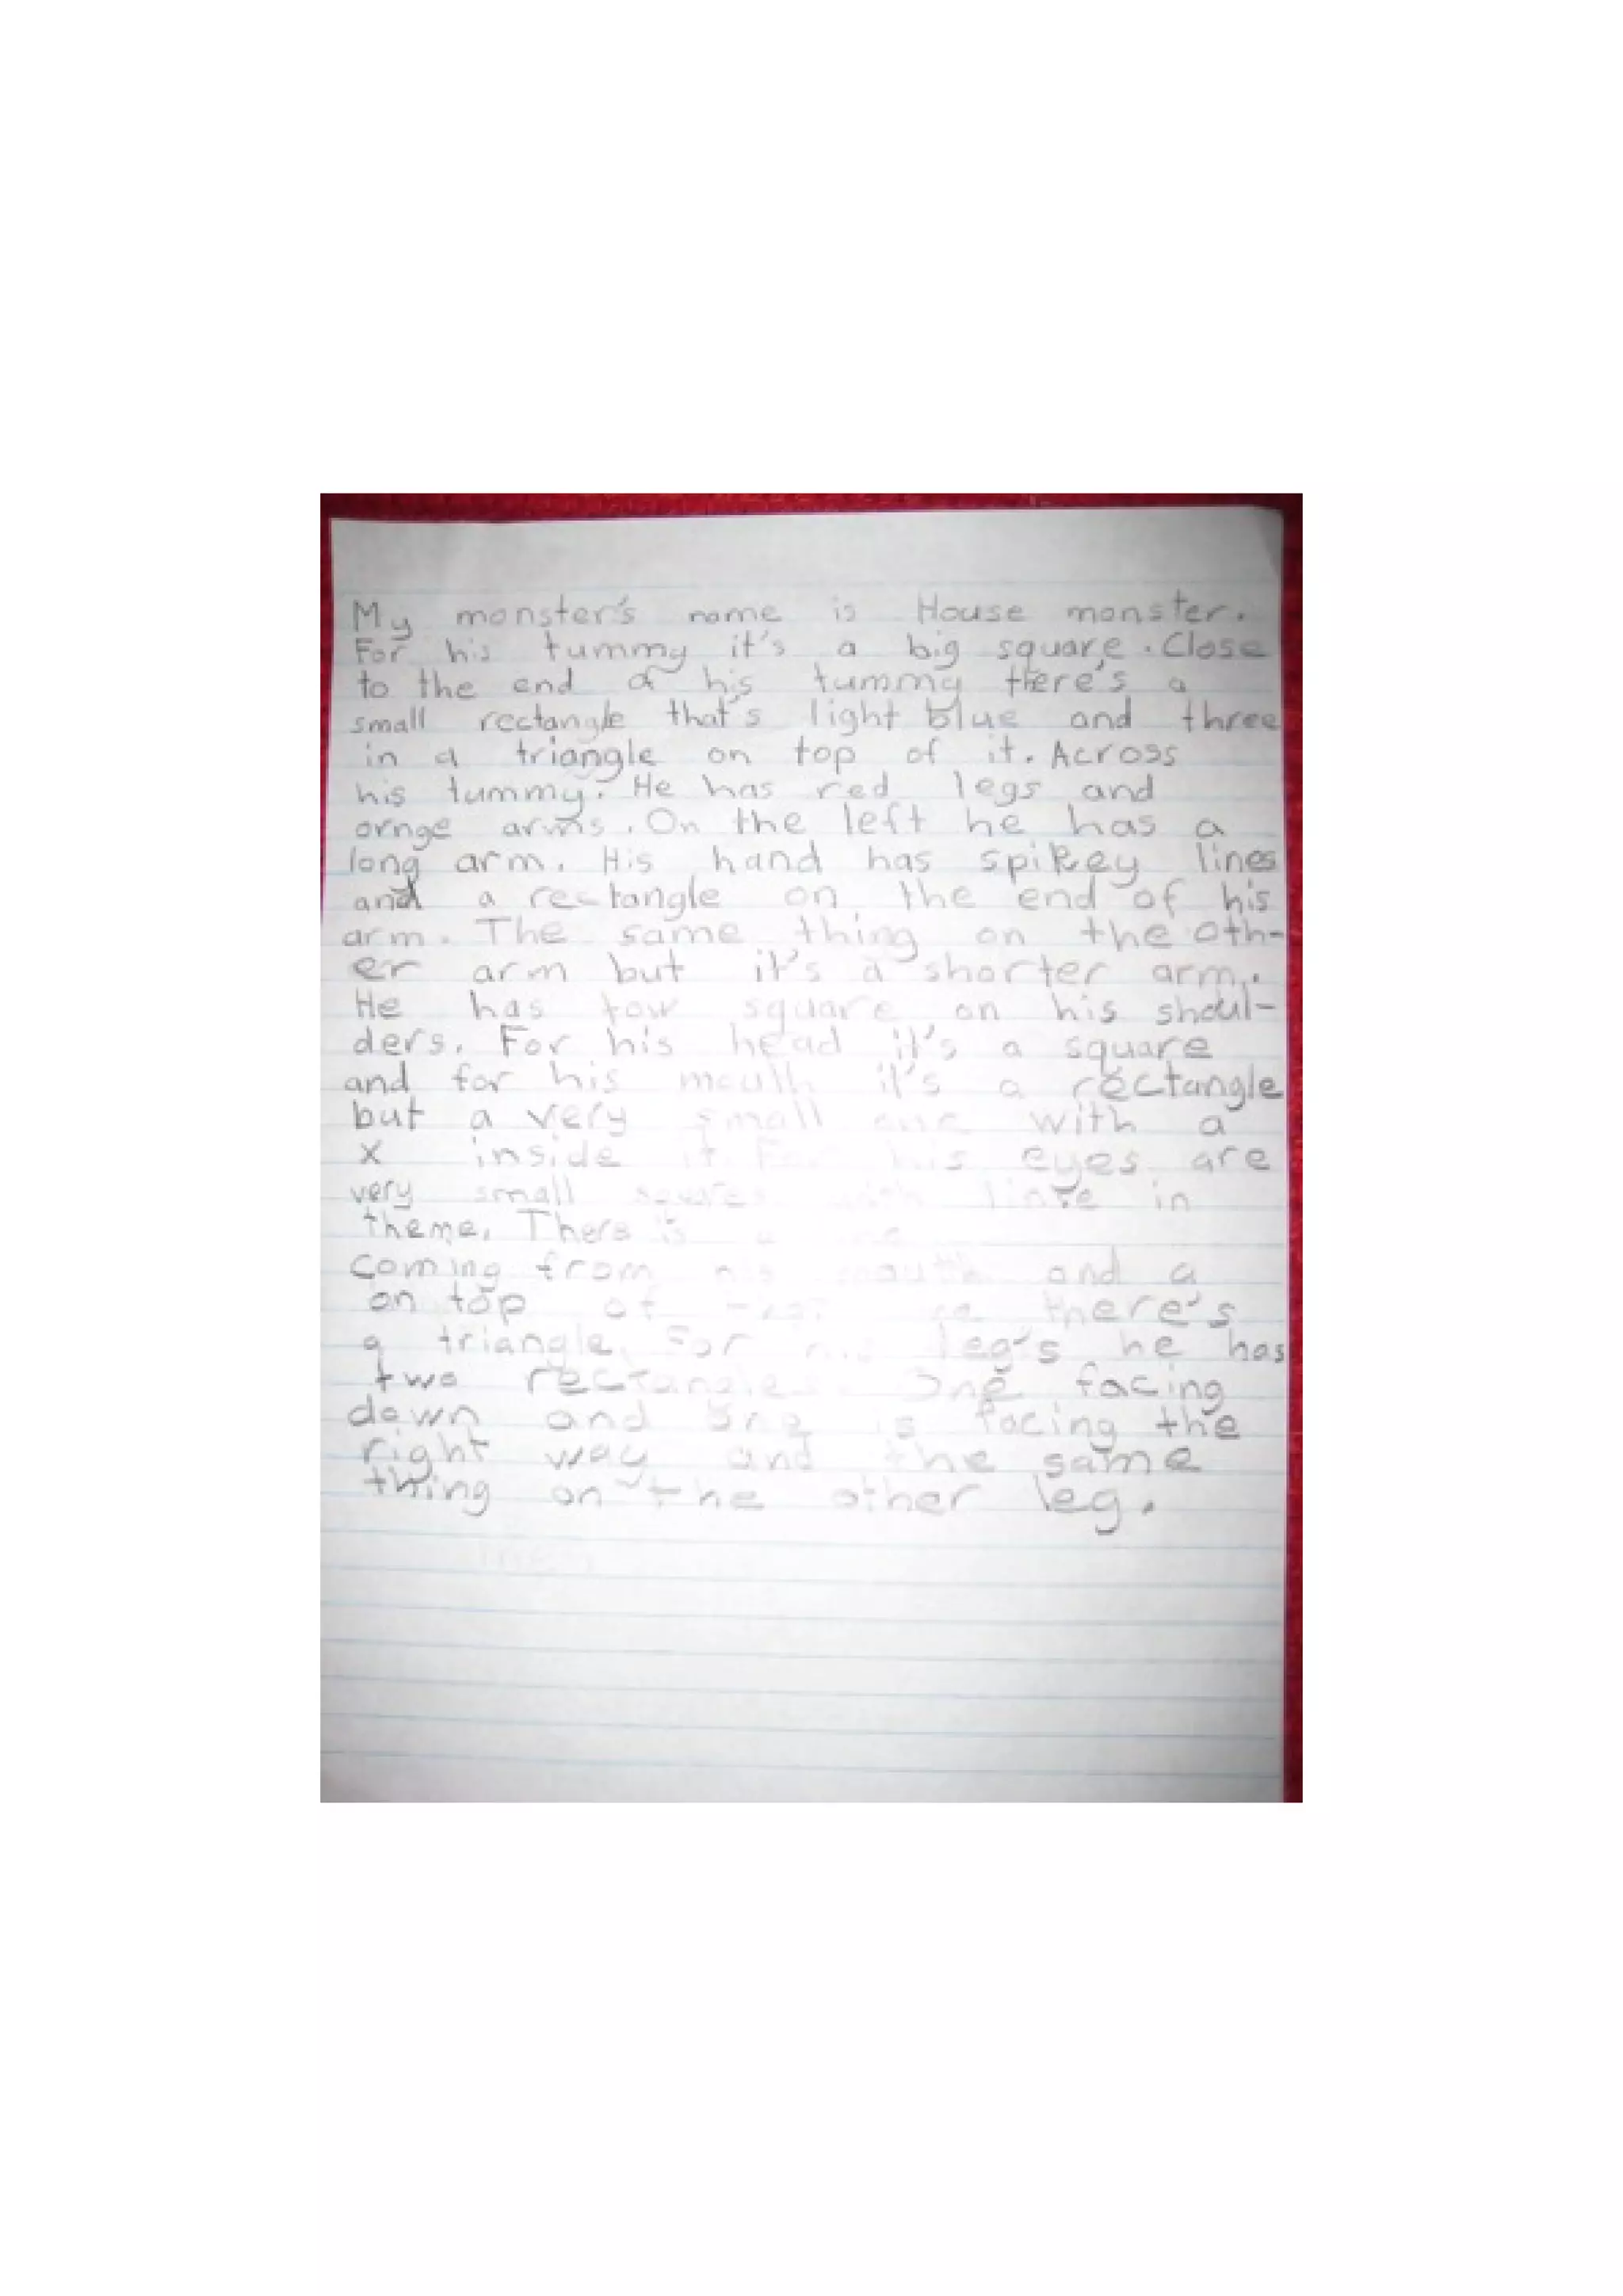 My monster's name is House monster.
For his tummy it's a big square. Close
to the end of his tummy there's a
small rectangle that's light blue and three
in a triangle on top of it. Across
his tummy. He has red legs and
ornge arms. On the left he has a
long arm. His hand has spikey lines
and a rectangle on the end of his
arm. The same thing on the oth-
er arm but it's a shorter arm.
He has tow square on his shoul-
ders. For his head it's a square
and for his mouth it's a rectangle
but a very small one with a
x inside it. For his eyes are
very small with in
theme. There is a
coming from his mouth and a
on top of there's
a triangle. For his leg's he has
two rectangles. One facing
down and one is facing the
right way and the same
thing on the other leg.